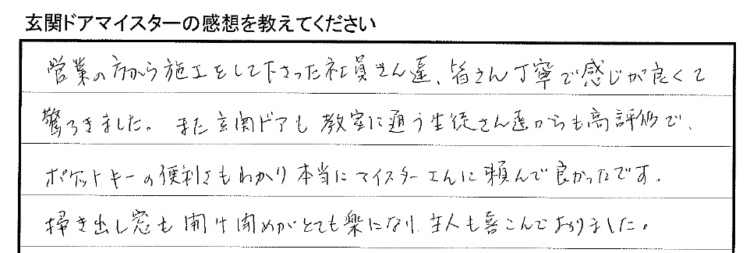 玄関ドアマイスターの感想を教えてください
営業の方から施工をして下さった社員さん達、皆さん丁寧で感じが良くて
驚ろきました。また玄関ドアも教室に通う生徒さん達からも高評価で、
ポケットキーの便利さもわかり本当にマイスターさんに頼んで良かったです。
掃き出し窓も開け閉めがとても楽になり、主人も喜こんでおりました。